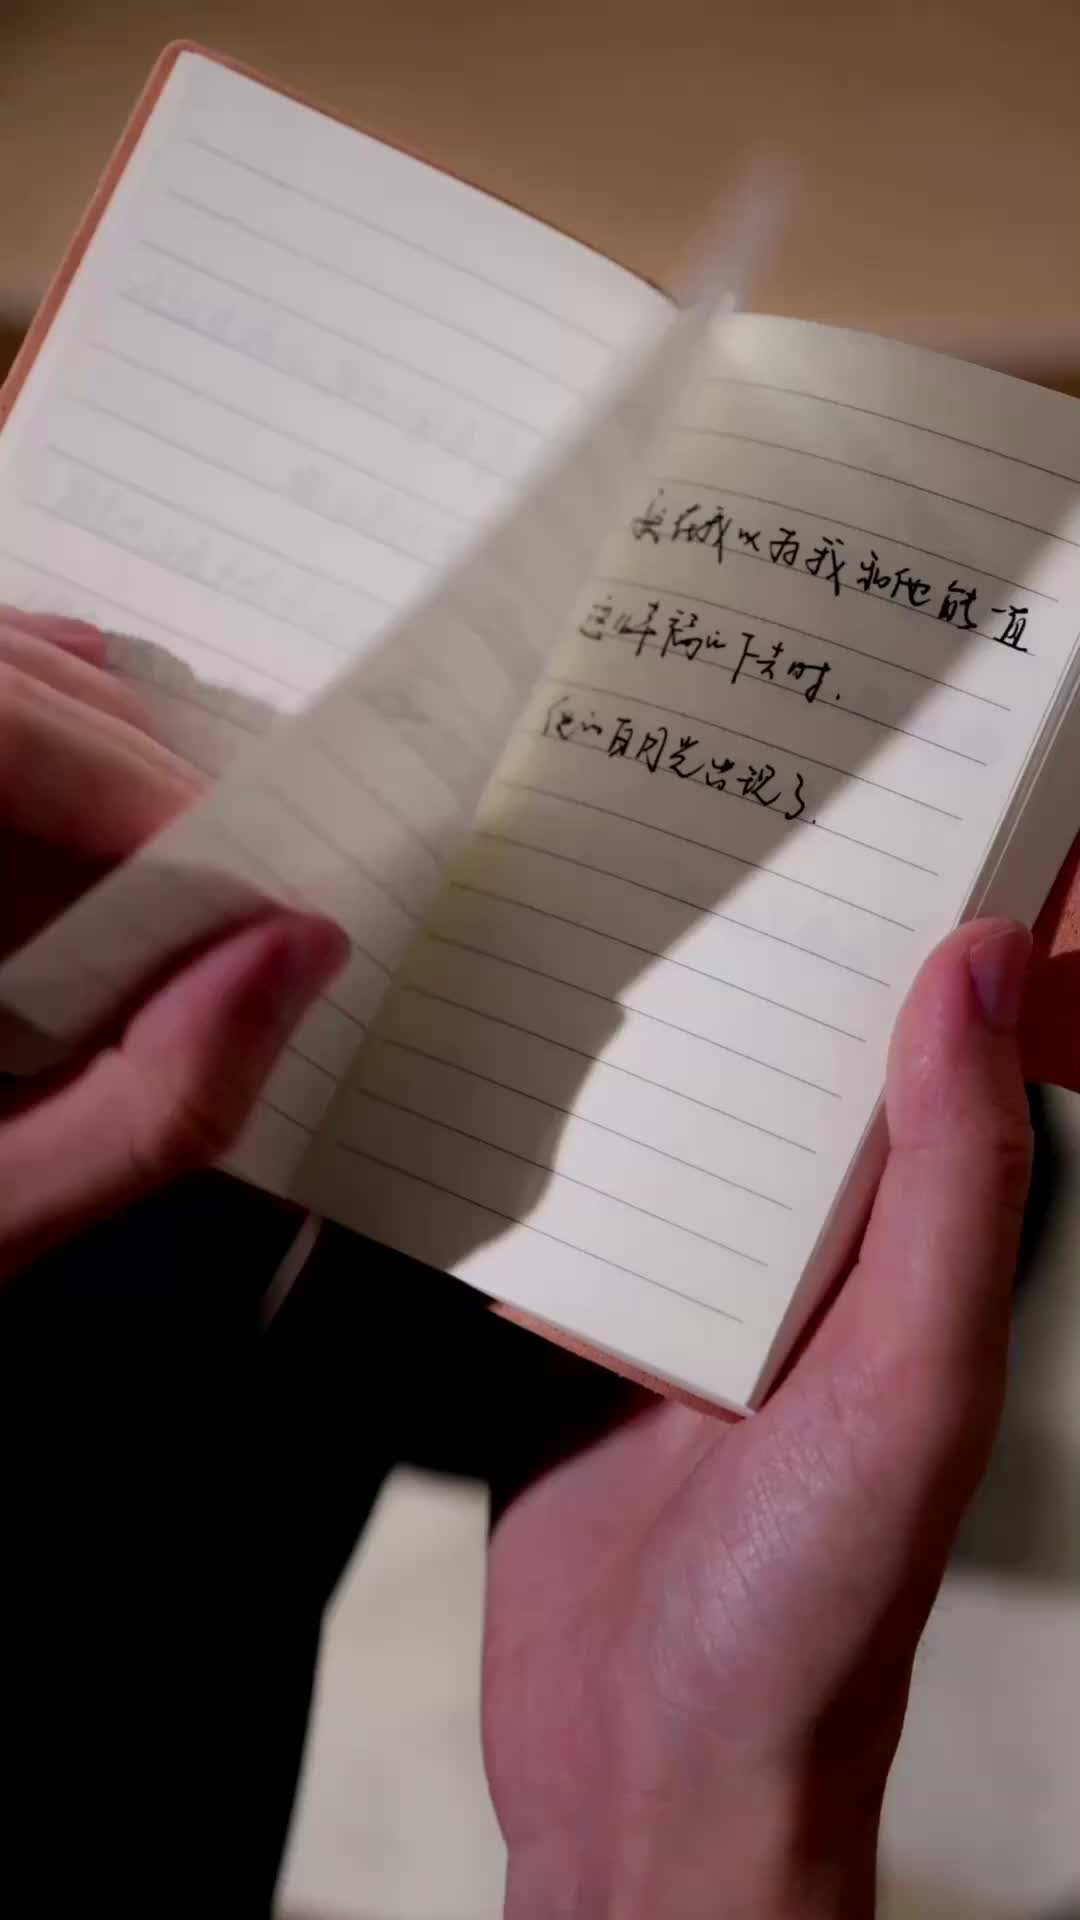 就在我以为我和他能一直
这样幸福的下去时.
他的白月光出现了.